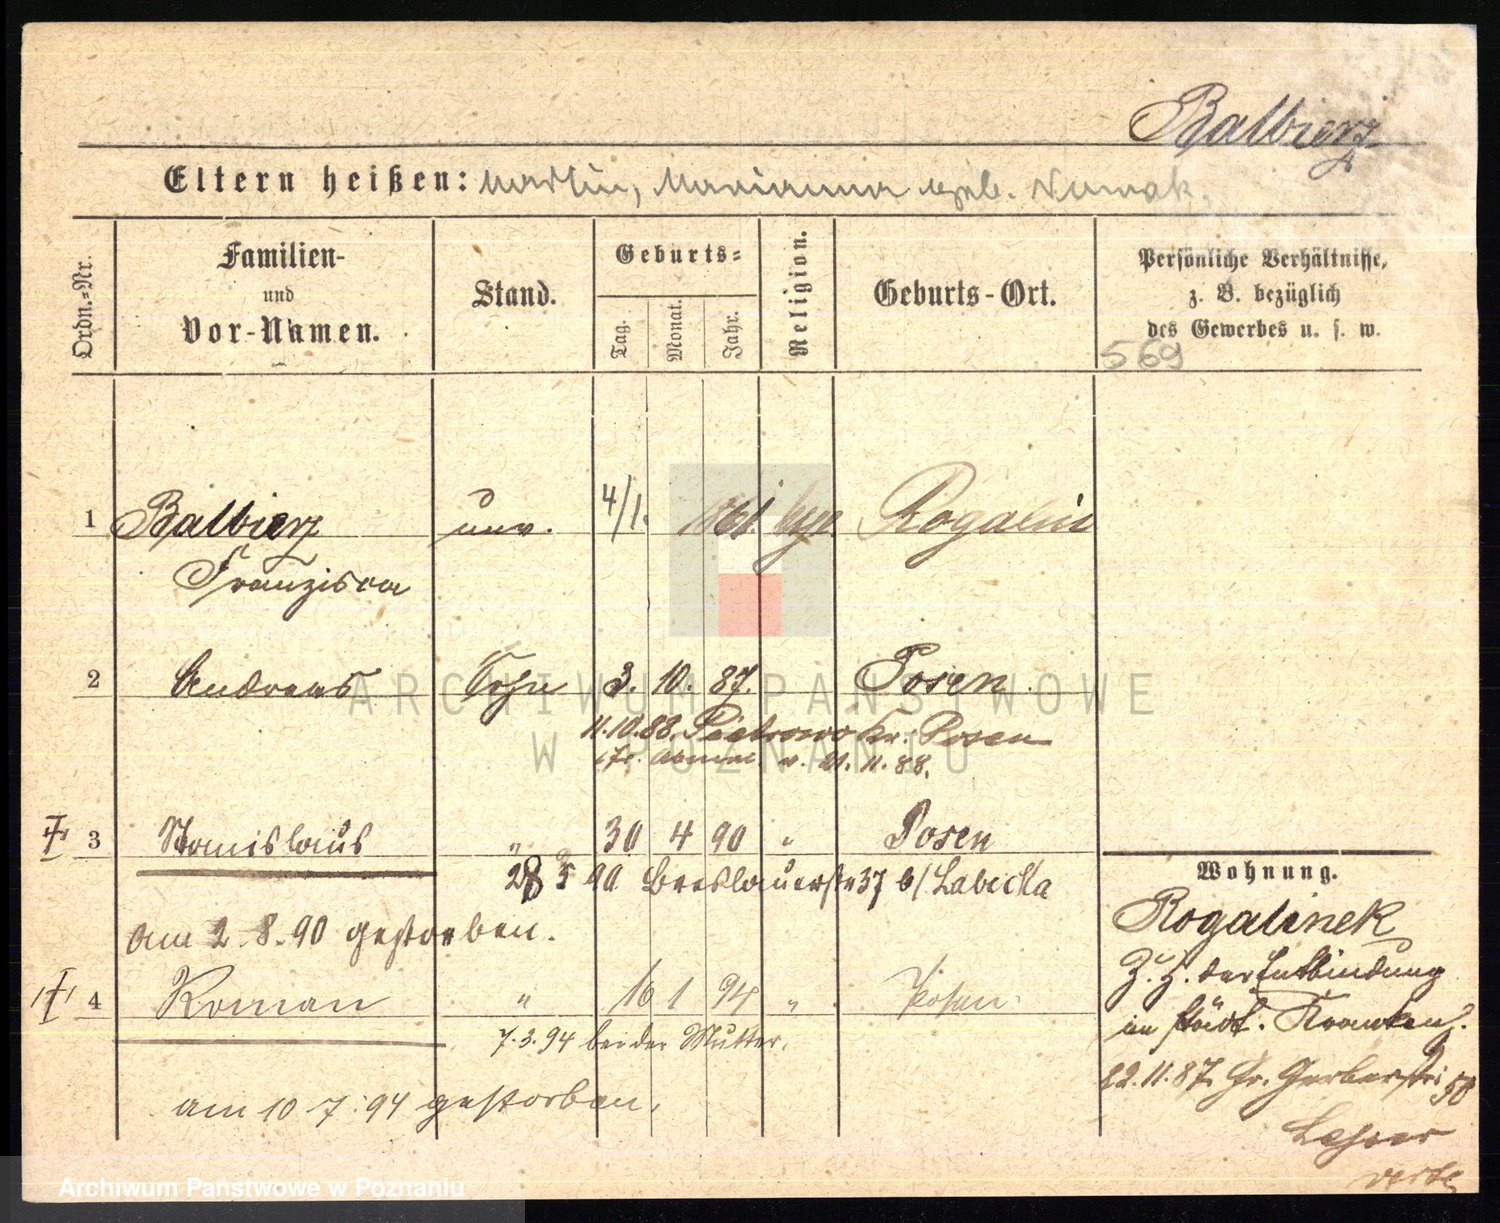 Balbierz
Eltern heißen: Martin, Marianna geb. Nowak.
Ordn.=Nr.
Familien-
und
Vor-Namen.
Stand.
Geburts=
Tag.
Monat.
Jahr.
Religion.
Geburts-Ort.
Persönliche Verhältnisse,
z. B. bezüglich
des Gewerbes u. s. w.
569
1 Balbierz unv. 4/1. 1861. Rogalin
Franziska
2 Andreas Sohn 3. 10. 87. Posen
11.10.88. Pietrowo Kr. Posen
v. 21. 11. 88.
3 Stanislaus " 30 4 90 " Posen
28 5 90 Breslauerstr 37 b/ Labecka
am 2.8.90 gestorben.
4 Roman " 16 1 94 " Posen.
7.3.94 bei der Mutter.
am 10 7.94 gestorben.
Wohnung.
Rogalinek
Z. Z. der Entbindung
im städt. Krankenh.
22.11.87. Gr. Gerberstr: 50
ARCHIWUM PAŃSTWOWE
W POZNANIU
Archiwum Państwowe w Poznaniu